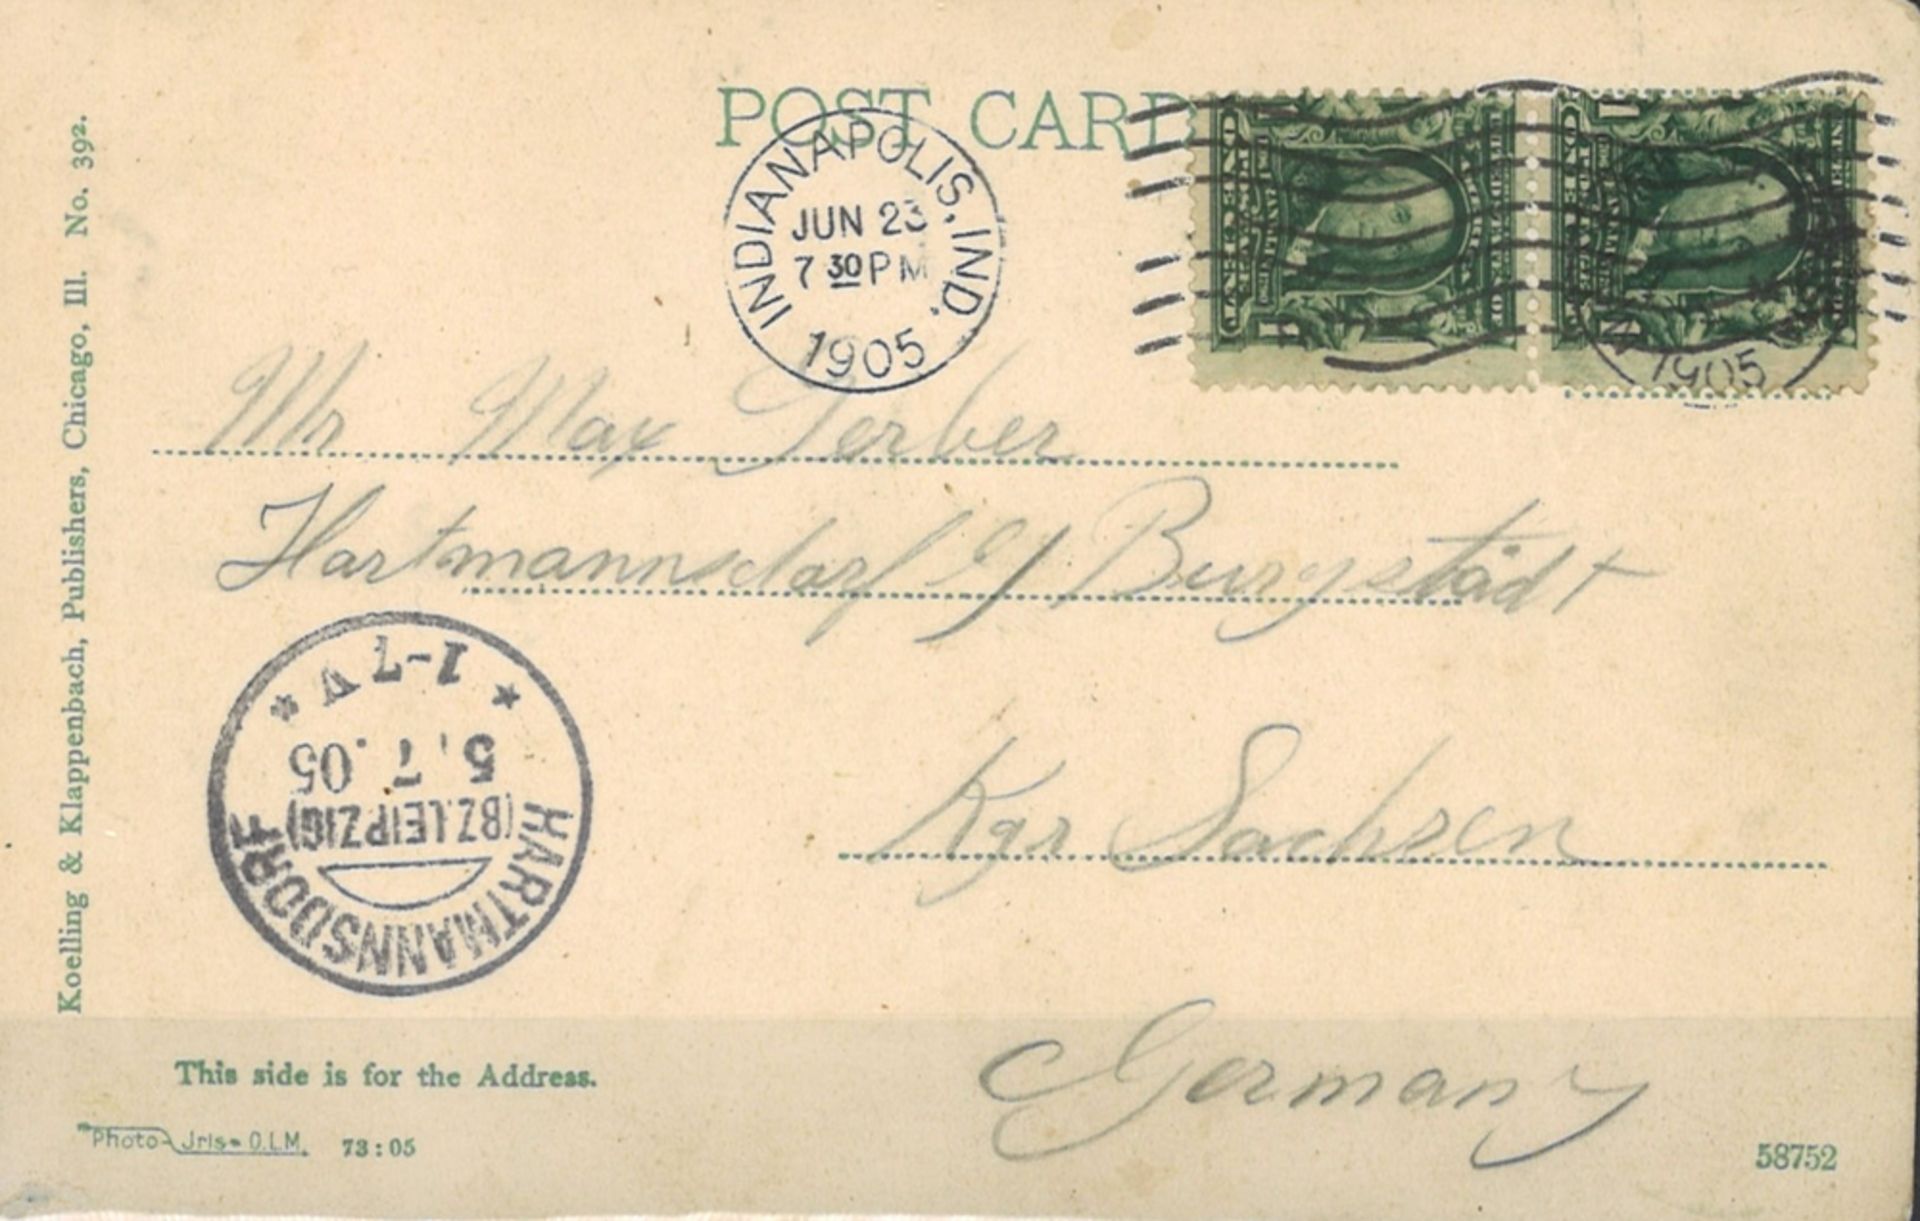 POST CARD
INDIANAPOLIS, IND.
JUN 23
7 30 PM
1905
1905
Mr Max Ferber
Hartmannsdorf b/ Burgstädt
Kgr Sachsen
Germany
1-7 V
5.7.05
(BZ. LEIPZIG)
HARTMANNSDORF
Koelling & Klappenbach, Publishers, Chicago, Ill. No. 392.
This side is for the Address.
Photo-Jris-O.L.M. 73:05
58752